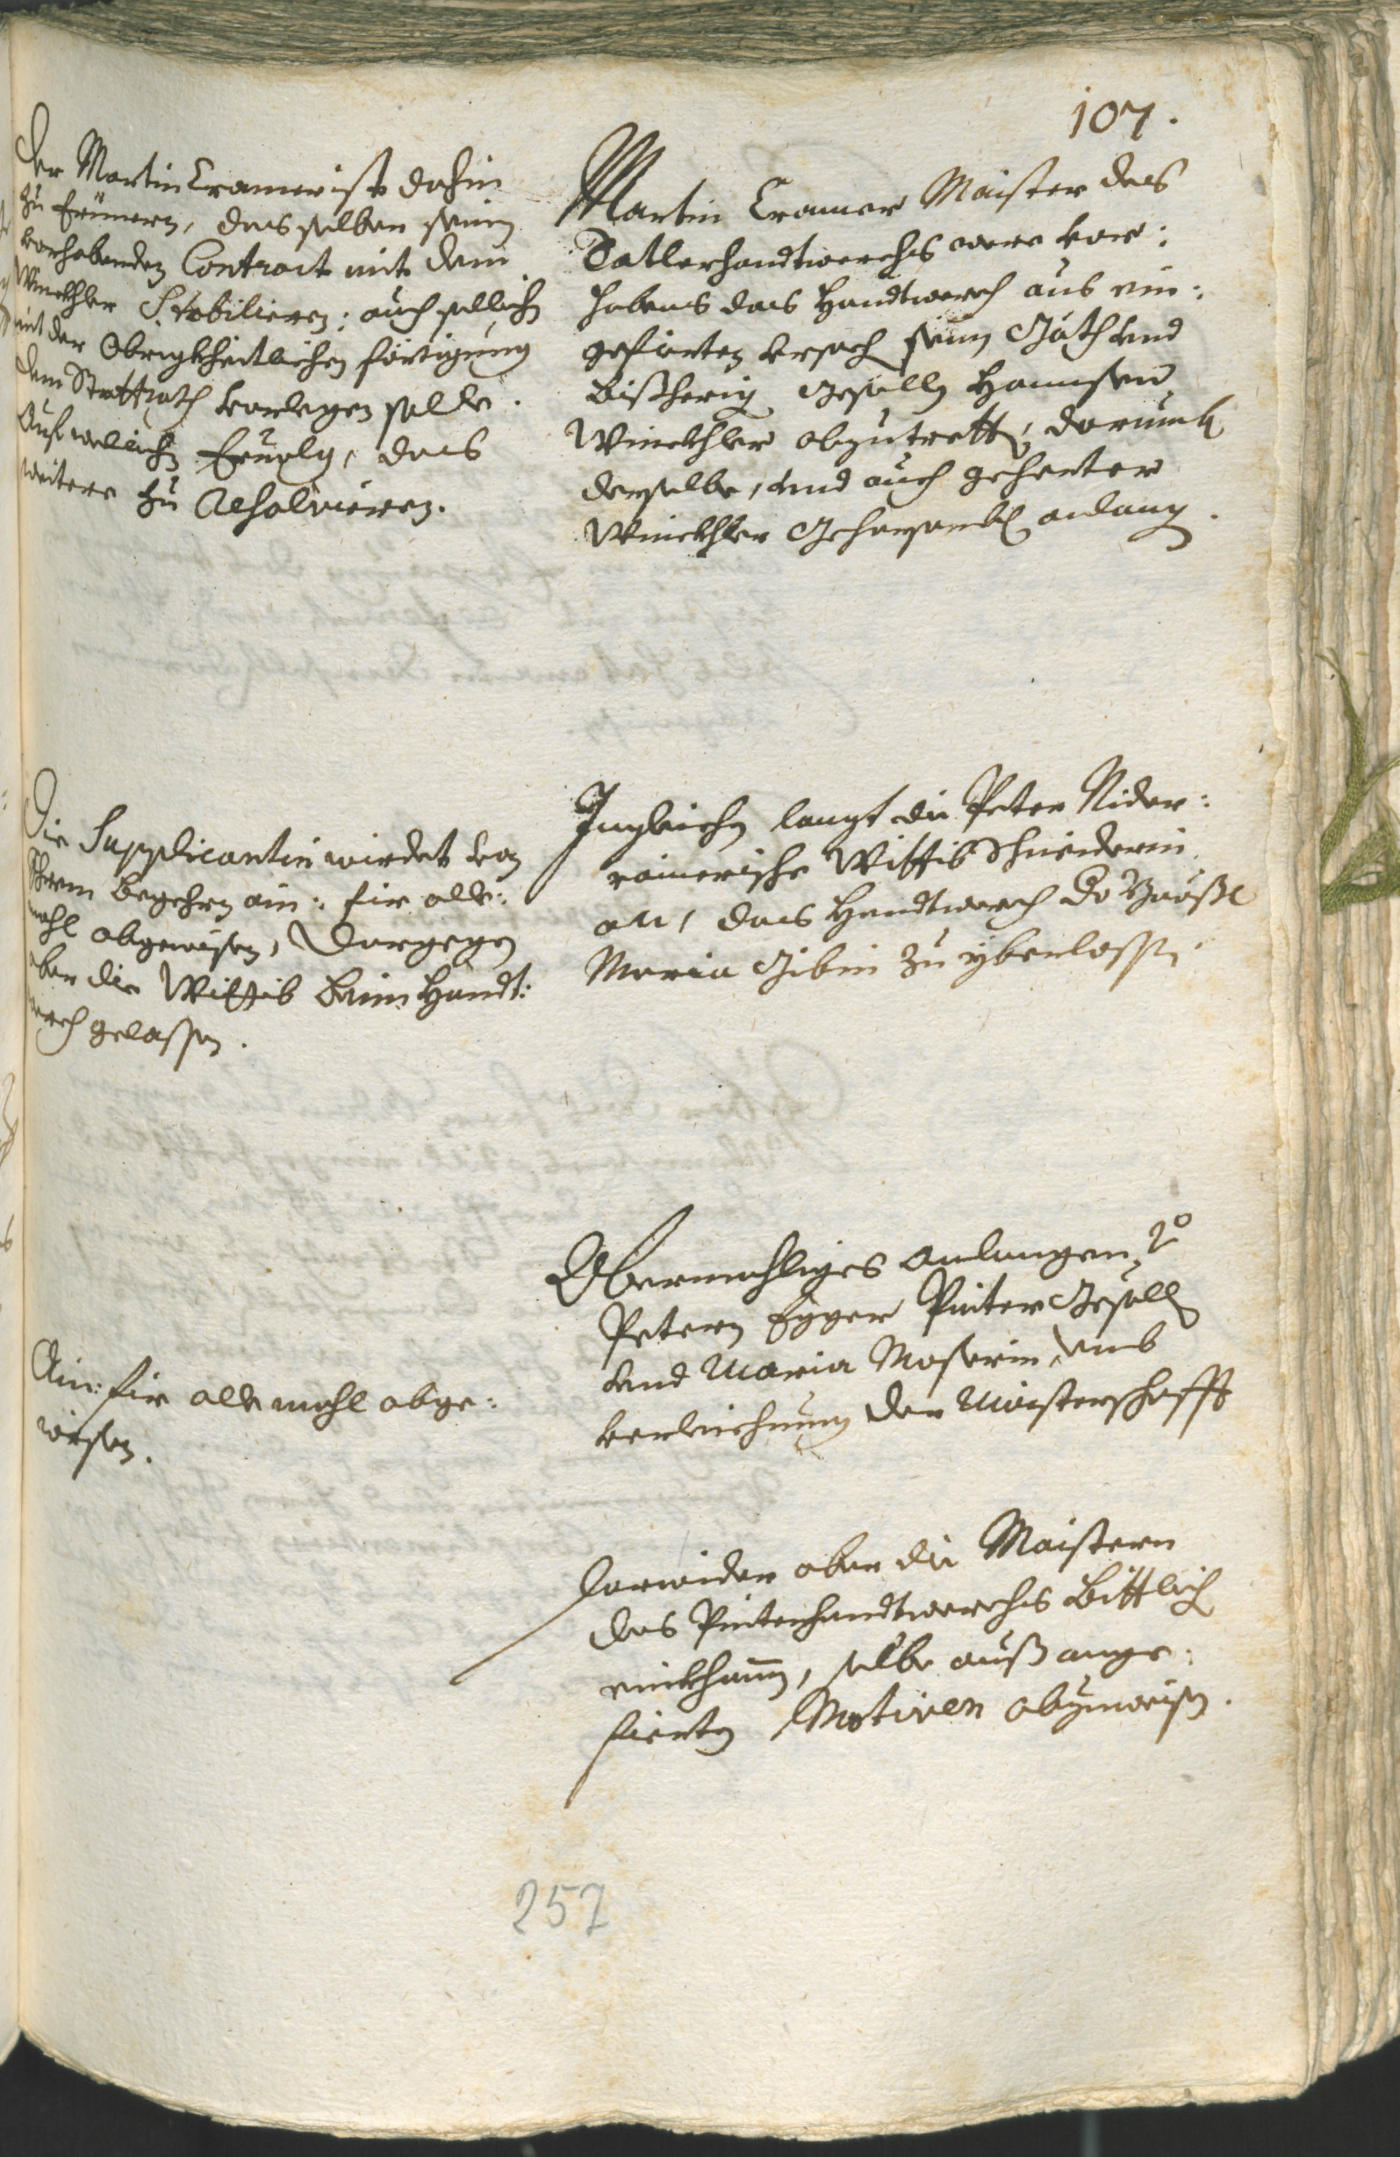 107.
Der Martin Cramer ist dahin
zu Erinnern, das selber seinen
vorhabenden Contract mit dem
Winckhler Stabilieren: auch sollichen
mit der Obrigkheitlichen förtigung
dem Stattrath vorlegen solle.
Auf wellichen Ervolg, das
weitere zu Resolvieren.
Martin Cramer Maister des
Satlerhandtwerchs were vor:
habens das Handtwerch aus ein:
gefierten ursach seinen und
bißherig Gesellen Hannsen
Winckhler abzutretten, darumb
derselbe, und auch gehenter
Winckhler Gehorsamb anlang.
Die Supplicantin wirdet von
Ihrem begehrn ain: fir alle:
mahl abgewisen, Dargegen
aber die Wittib beim Handt:
werch gelassen.
Ingleichen langt die Peter Nider:
rainerische Wittib Schneiderin
an, das Handtwerch
Maria zu yberlassen.
Abermahliges anlangen
Petern Egger Pinter Gesellen
und Maria Moserin, umb
verleichnung der Maisterschafft
Ain: fir alle mahl abge:
wisen.
Darwider aber die Maistern
des Pinterhandtwerchs Bittlich
einkhamen, selbe auß ange:
fierten Motiven abzuweisen.
257